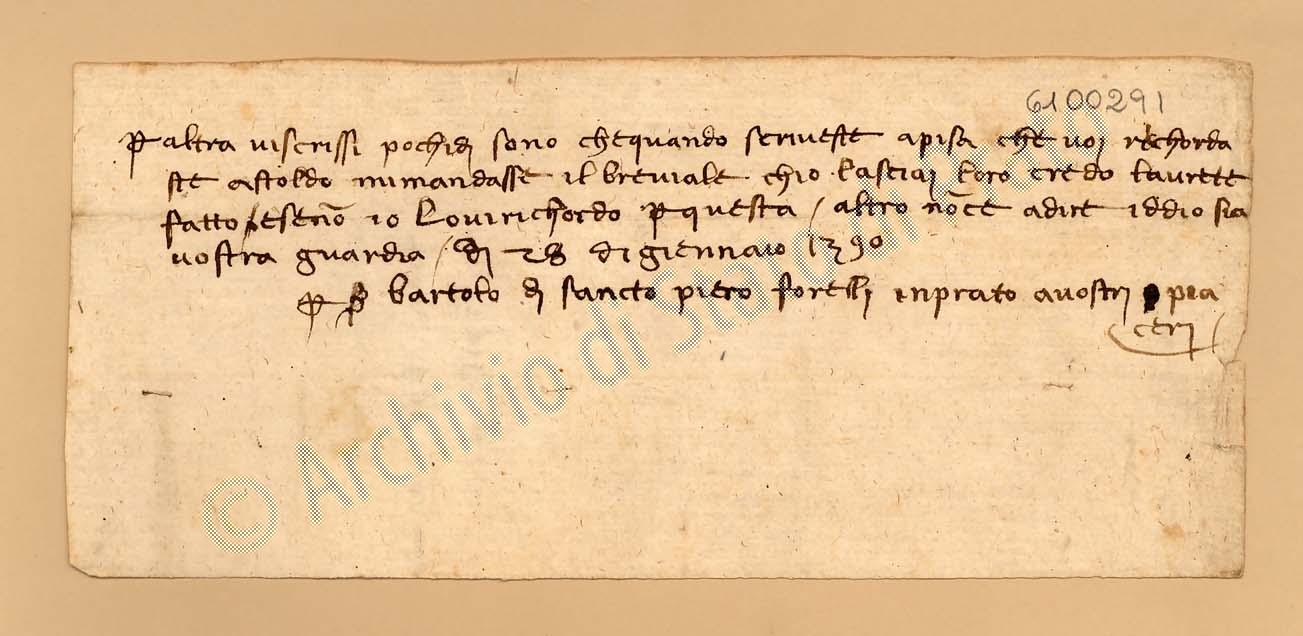 6100291
P altra viscrissi pochidi sono chequando scriveste apisa che voi rechorda
ste astoldo mimandasse il breviale chio lasciai loro credo lavrete
fatto / eseno io Lovirichordo p questa / altro nonce adire iddio sia
vostra guardia / di 28 digiennaio 1390
P p bartolo di sancto piero forelli inprato avostri pia
ceri
© Archivio di Stato di Prato